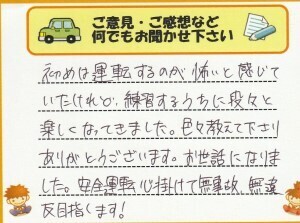 ご意見・ご感想など
何でもお聞かせ下さい
初めは運転するのが怖いと感じて
いたけれど、練習するうちに段々と
楽しくなってきました。色々教えて下さり
ありがとうございます。お世話になりま
した。安全運転心掛けて無事故、無違
反目指します!